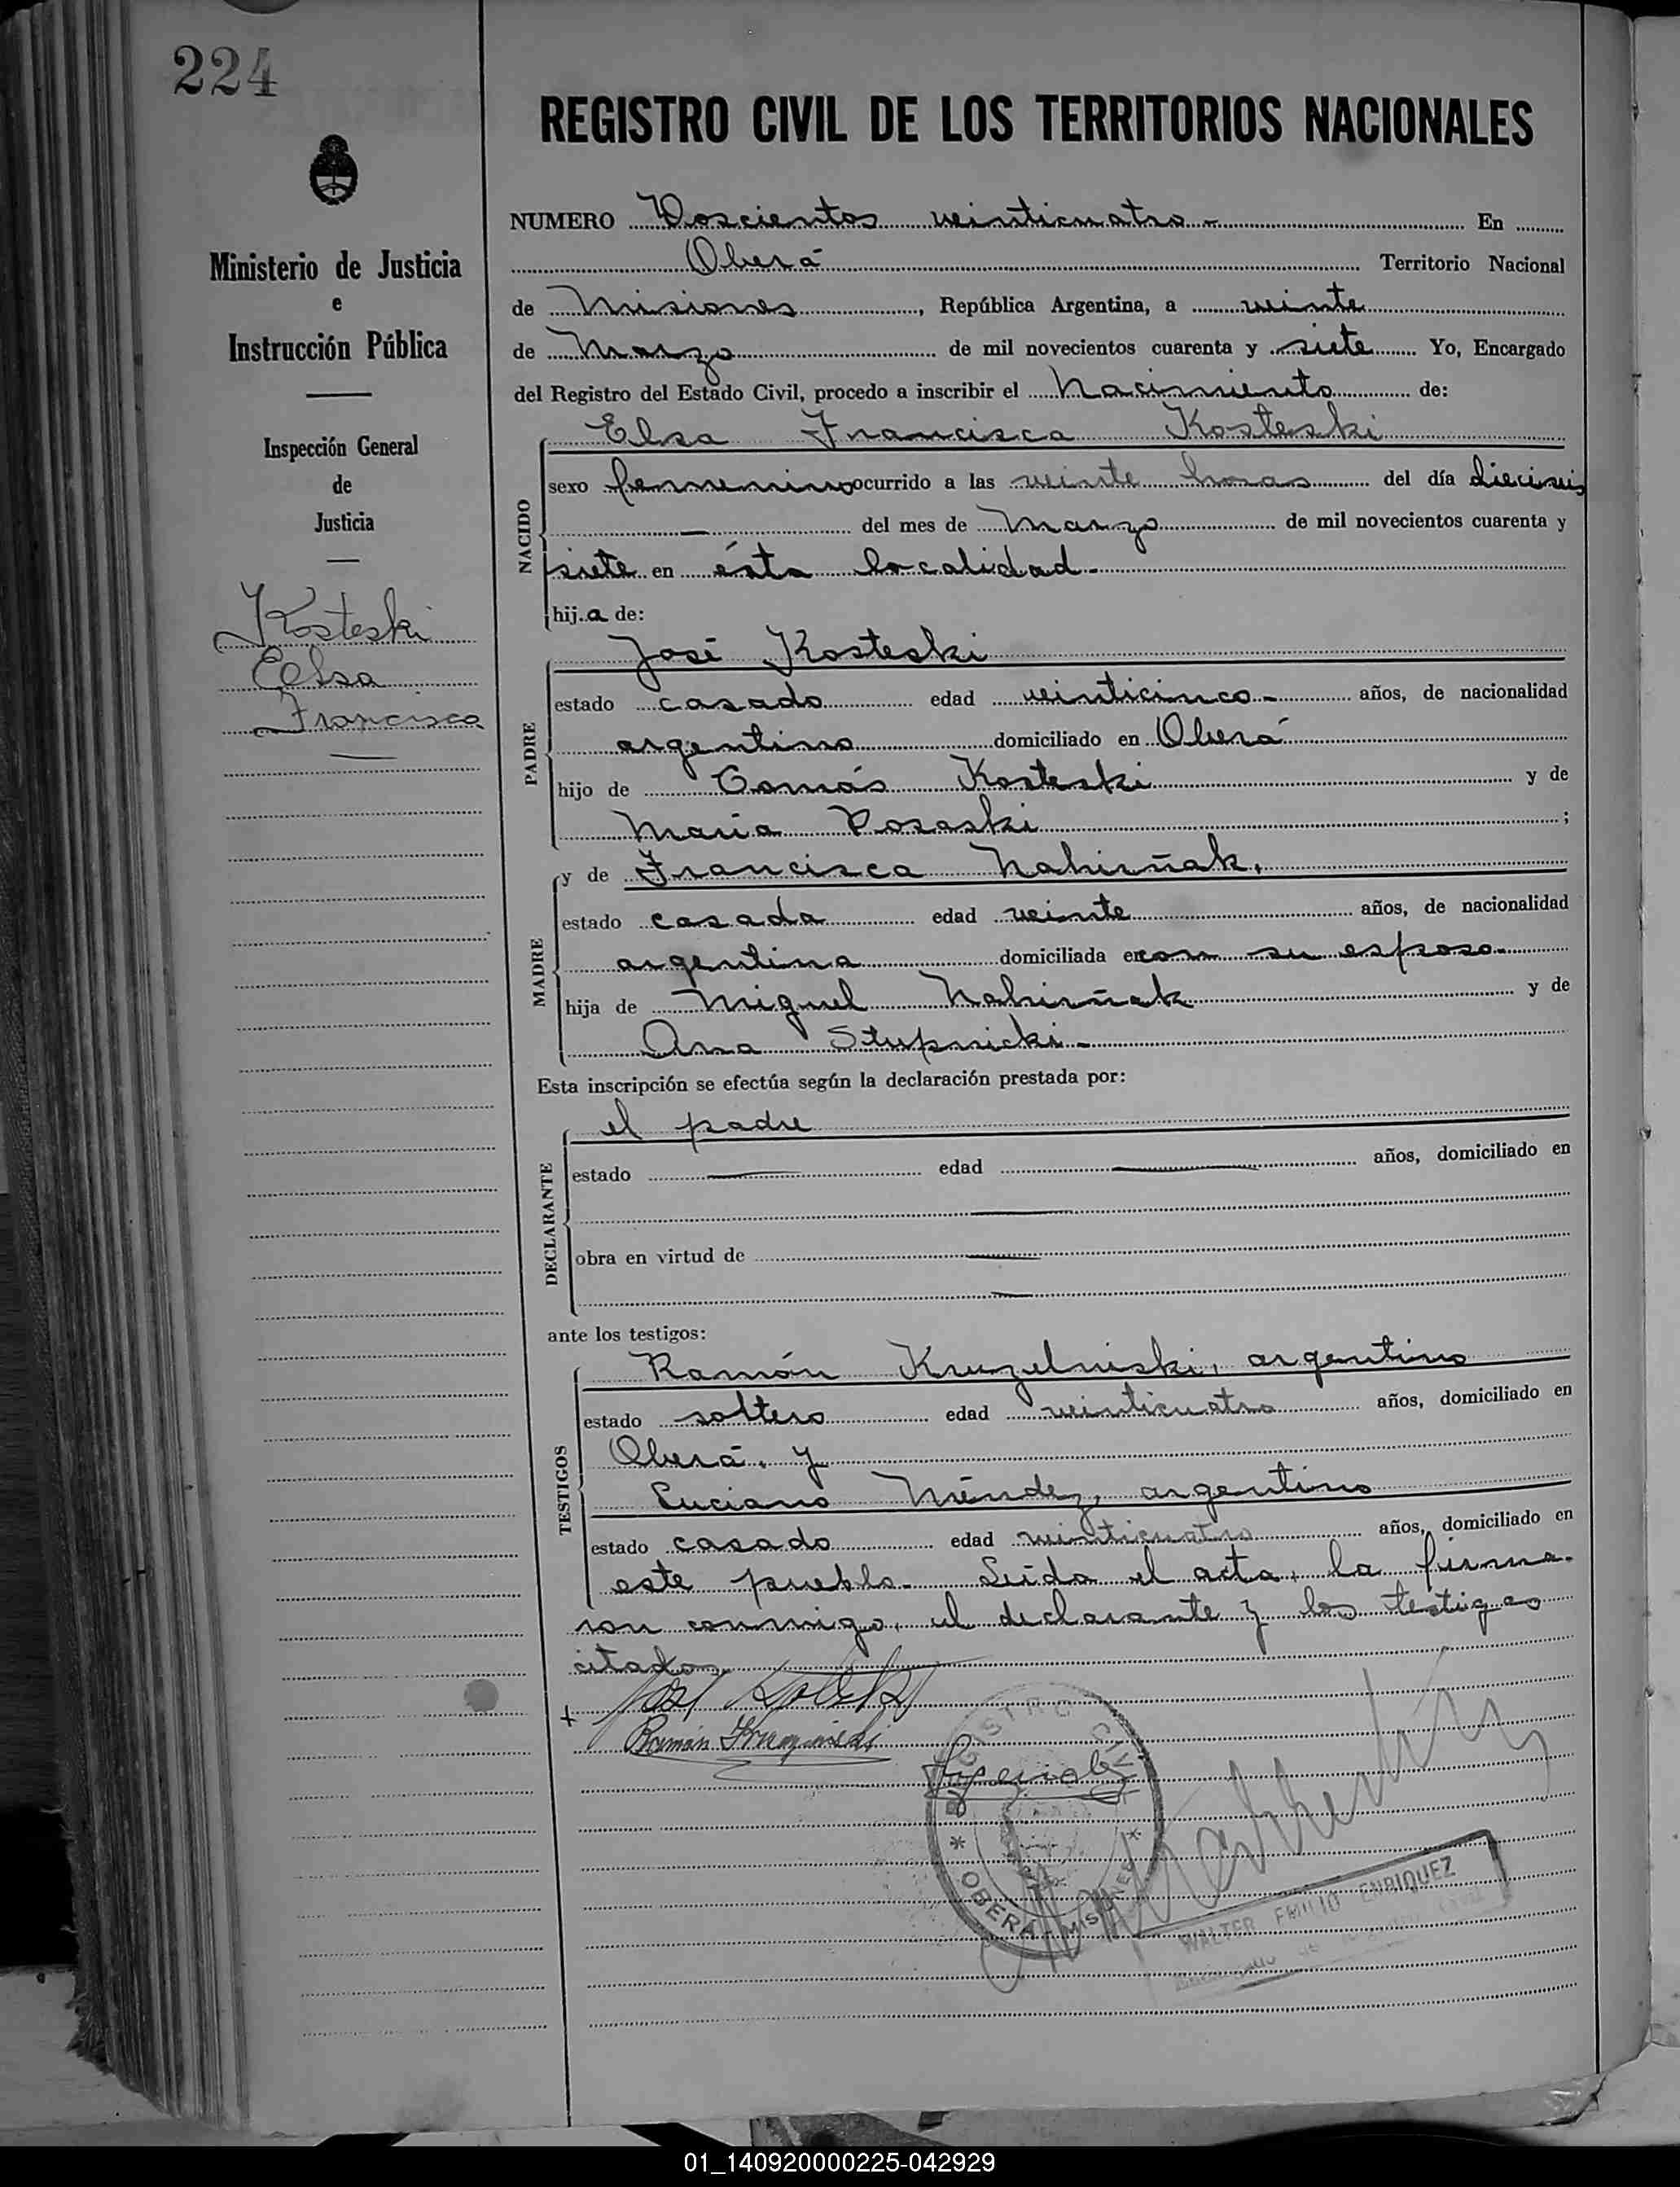 224
Ministerio de Justicia
e
Instrucción Pública
Inspección General
de
Justicia
Kosteski
Elsa
Francisca
REGISTRO CIVIL DE LOS TERRITORIOS NACIONALES
NUMERO Doscientos veinticuatro - En
Oberá Territorio Nacional
de Misiones, República Argentina, a veinte
de Marzo de mil novecientos cuarenta y siete Yo, Encargado
del Registro del Estado Civil, procedo a inscribir el Nacimiento de:
NACIDO
Elsa Francisca Kosteski
sexo femenino ocurrido a las veinte horas del día dieciseis
— del mes de Marzo de mil novecientos cuarenta y
siete en ésta localidad.-
hija de:
PADRE
José Kosteski
estado casado edad veinticinco - años, de nacionalidad
argentino domiciliado en Oberá
hijo de Tomás Kosteski y de
María ;
MADRE
y de Francisca Nahirñak,
estado casada edad veinte años, de nacionalidad
argentina domiciliada en con su esposo
hija de Miguel Nahirñak y de
Ana Stupnicki -
Esta inscripción se efectúa según la declaración prestada por:
DECLARANTE
el padre
estado — edad — años, domiciliado en
obra en virtud de —
ante los testigos:
TESTIGOS
Ramón argentino
estado soltero edad veinticuatro años, domiciliado en
Oberá, y
Luciano Méndez, argentino
estado casado edad veinticuatro años, domiciliado en
este pueblo.- Leida el acta, la firma-
ron conmigo, el declarante y los testigos
citados
Ramón
REGISTRO CIVIL
* OBERÁ MISIONES *
WALTER EMILIO ENRIQUEZ
01_140920000225-042929